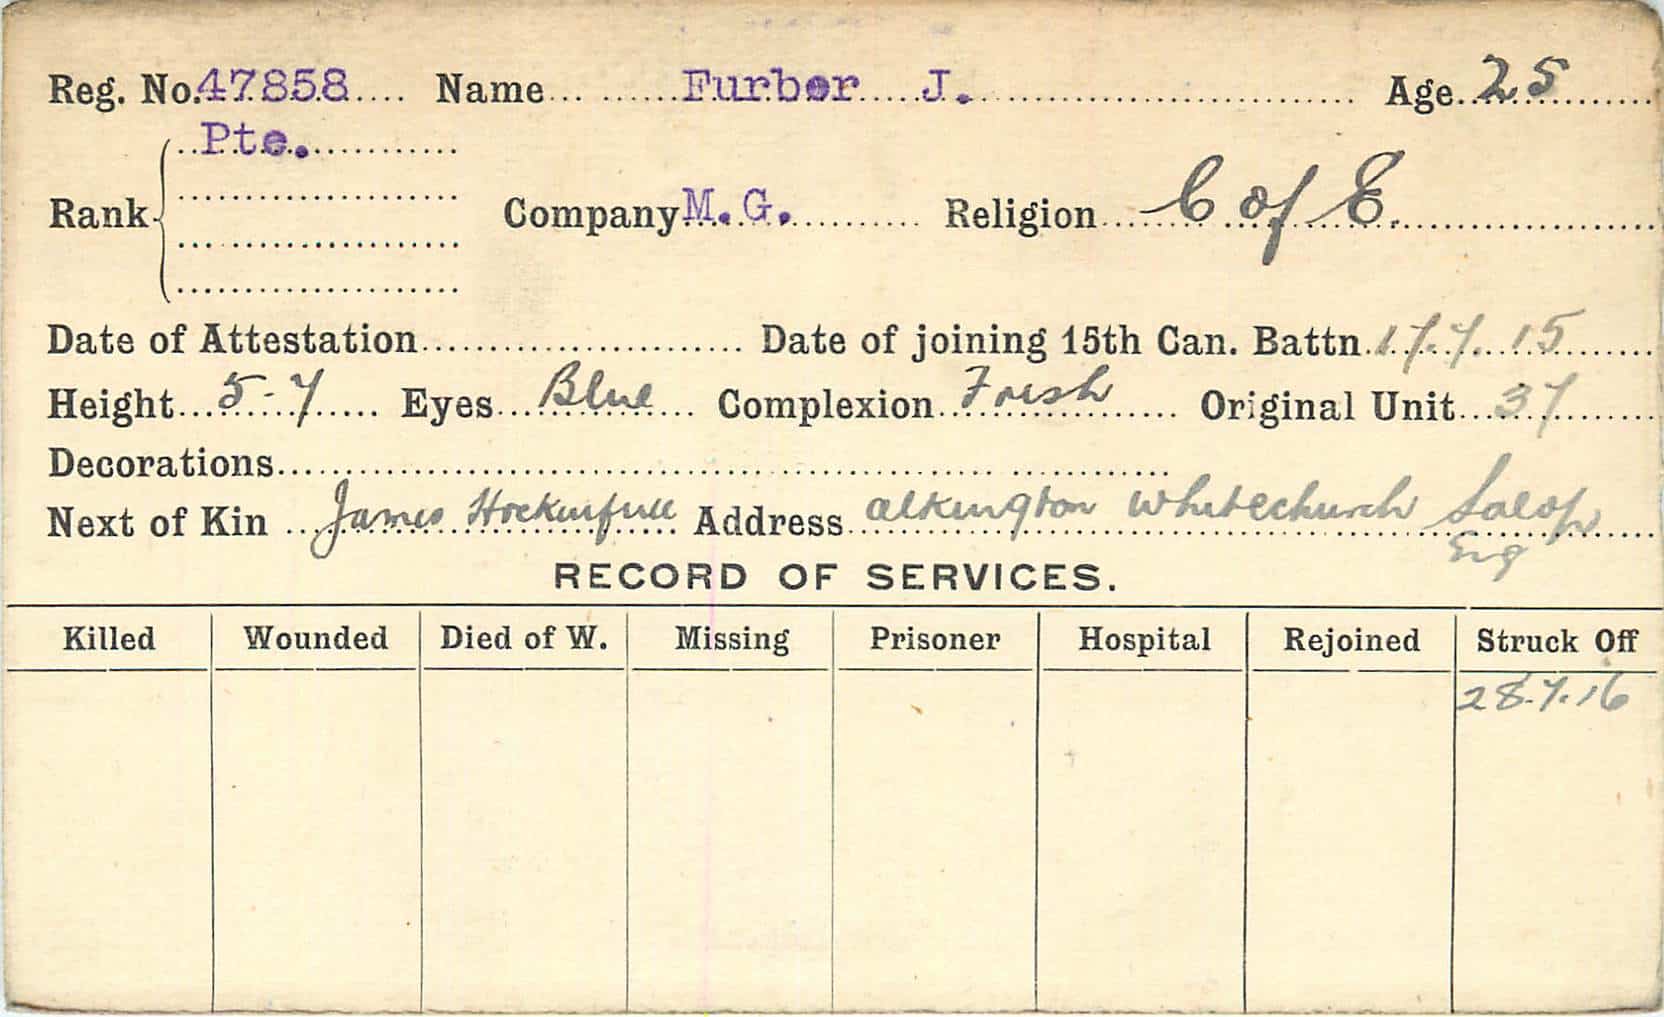 Reg. No. 47858 Name Furber J. Age 25
Pte.
Rank Company M. G. Religion C of E.
Date of Attestation Date of joining 15th Can. Battn 17.7.15
Height 5-7 Eyes Blue Complexion Fresh Original Unit 37
Decorations
Next of Kin James Hockenfull Address Alkington Whitechurch Salop
Eng
RECORD OF SERVICES.
Killed Wounded Died of W. Missing Prisoner Hospital Rejoined Struck Off
28.7.16